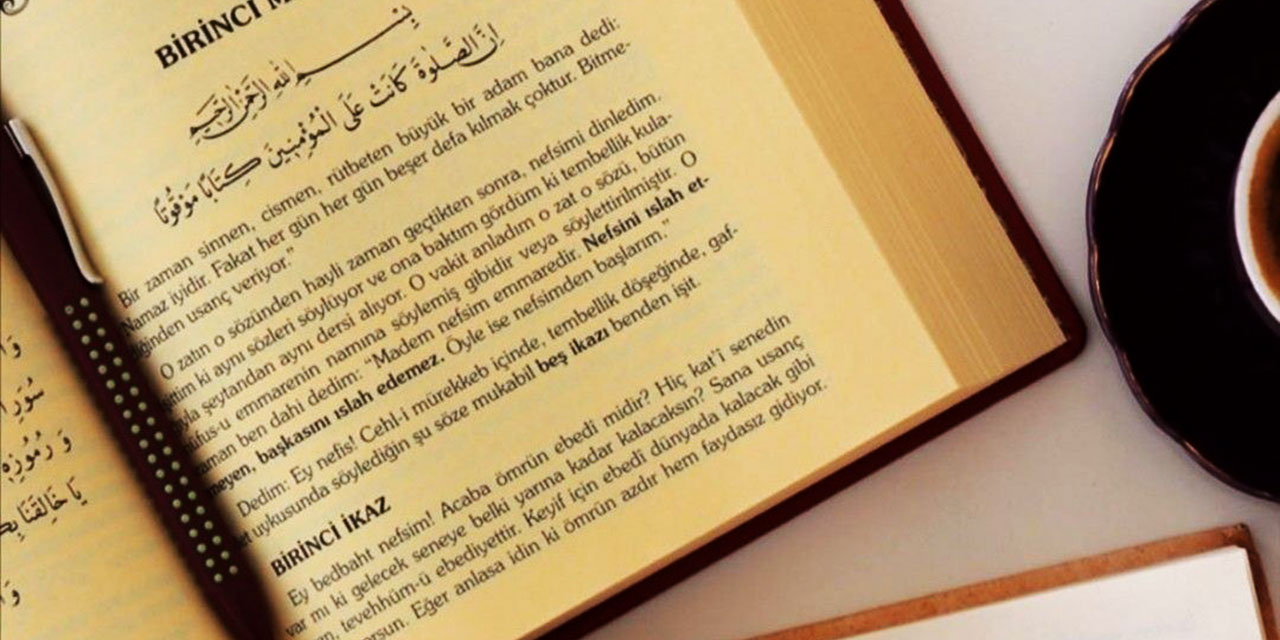 BİRİNCİ
بِسْمِ اللهِ الرَّحْمٰنِ الرَّحِيمِ
اِنَّ الصَّلٰوةَ كَانَتْ عَلَى الْمُؤْمِنِينَ كِتَابًا مَوْقُوتًا
Bir zaman sinnen, cismen, rütbeten büyük bir adam bana dedi:
Namaz iyidir. Fakat her gün her gün beşer defa kılmak çoktur. Bitme-
usanç veriyor."
O zatın o sözünden hayli zaman geçtikten sonra, nefsimi dinledim.
ki aynı sözleri söylüyor ve ona baktım gördüm ki tembellik kula-
şeytandan aynı dersi alıyor. O vakit anladım o zat o sözü, bütün
emmarenin namına söylemiş gibidir veya söylettirilmiştir. O
ben dahi dedim: "Madem nefsim emmaredir. Nefsini ıslah et-
meyen, başkasını ıslah edemez. Öyle ise nefsimden başlarım."
Dedim: Ey nefis! Cehl-i mürekkeb içinde, tembellik döşeğinde, gaf-
uykusunda söylediğin şu söze mukabil beş ikazı benden işit.
BİRİNCİ İKAZ
Ey bedbaht nefsim! Acaba ömrün ebedî midir? Hiç kat'î senedin
var mı ki gelecek seneye belki yarına kadar kalacaksın? Sana usanç
tevehhüm-ü ebediyettir. Keyif için ebedî dünyada kalacak gibi
Eğer anlasa idin ki ömrün azdır hem faydasız gidiyor.
سُورَ
وَ رُمُوزِهِ
يَا خَالِقَنَا